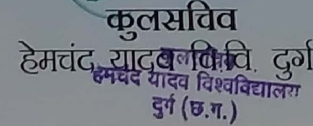 कुलसचिव
हेमचंद यादव वि.वि. दुर्ग
हेमचंद यादव विश्वविद्यालय
दुर्ग (छ.ग.)